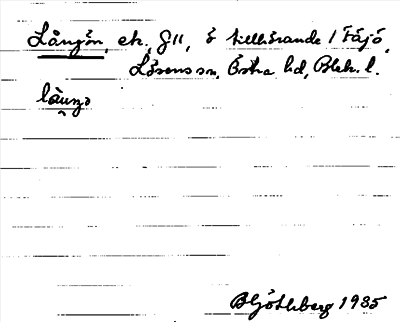 Långön, ek. G11, ö tillhörande 1 Fäjö,
Lösens sn, Östra hd, Blek. l.
låungo
B Götlberg 1935